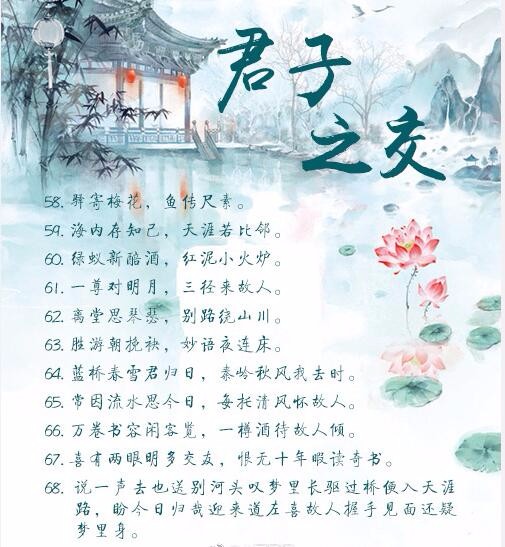 君子
之交
58. 驿寄梅花，鱼传尺素。
59. 海内存知己，天涯若比邻。
60. 绿蚁新醅酒，红泥小火炉。
61. 一尊对明月，三径来故人。
62. 离堂思琴瑟，别路绕山川。
63. 胜游朝挽袂，妙语夜连床。
64. 蓝桥春雪君归日，秦岭秋风我去时。
65. 常因流水思今日，每托清风怀故人。
66. 万卷书容闲客览，一樽酒待故人倾。
67. 喜有两眼明多交友，恨无十年暇读奇书。
68. 说一声去也送别河头叹梦里长驱过桥便入天涯
路，盼今日归哉迎来道左喜故人握手见面还疑
梦里身。